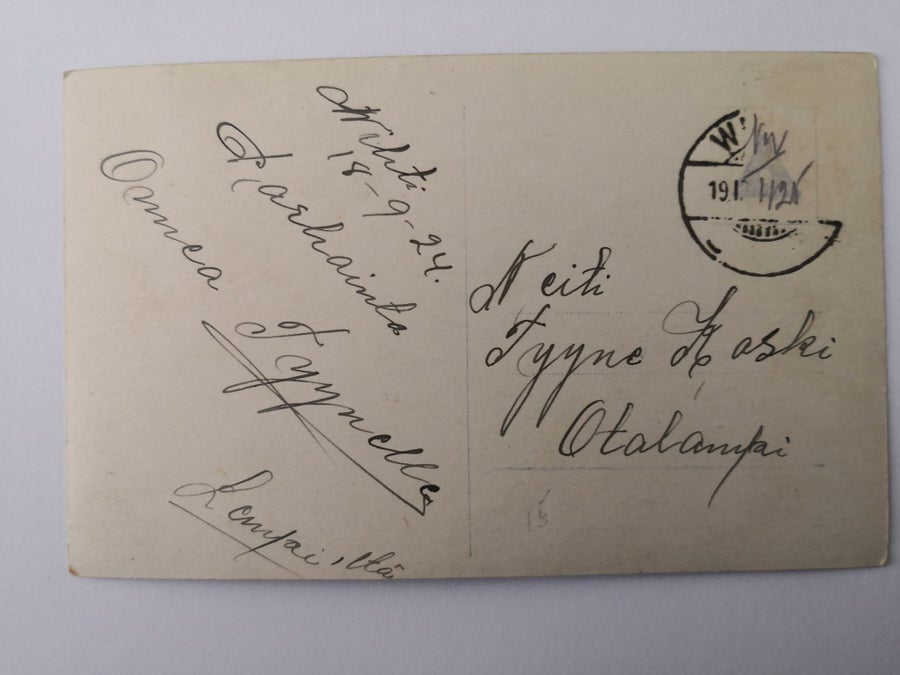 Wihti
18-9-24.
Parhainta
Onnea
Tyynelle
Lempi,ltä
Neiti
Tyyne Koski
Otalampi
W
19.I
15